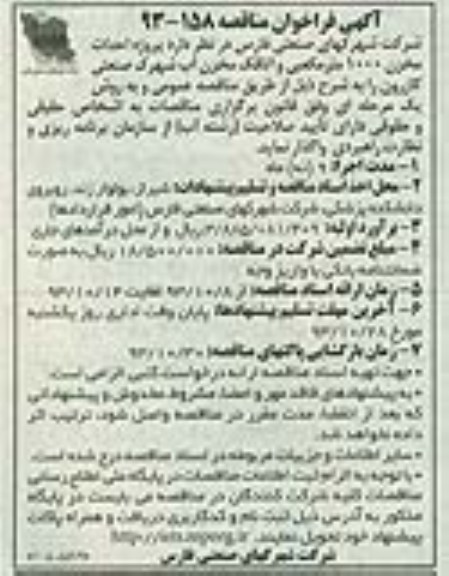 آگهی فراخوان مناقصه ۱۵۸-۹۳
شرکت شهرکهای صنعتی فارس در نظر دارد پروژه احداث
مخزن ۱۰۰۰ مترمکعبی و اتاقک مخزن آب شهرک صنعتی
کازرون را به شرح ذیل از طریق مناقصه عمومی و به روش
یک مرحله ای وفق قانون برگزاری مناقصات به اشخاص حقیقی
و حقوقی دارای تأیید صلاحیت (رشته آب) از سازمان برنامه ریزی و
نظارت راهبردی واگذار نماید.
۱- مدت اجرا: ۹ (نه) ماه
۲- محل اخذ اسناد مناقصه و تسلیم پیشنهادات: شیراز، بولوار زند، روبروی
دانشکده پزشکی، شرکت شهرکهای صنعتی فارس (امور قراردادها)
۳- برآورد اولیه: ریال و از محل درآمدهای جاری
۴- مبلغ تضمین شرکت در مناقصه: ریال به صورت
ضمانتنامه بانکی یا واریز وجه
۵- زمان ارائه اسناد مناقصه: از ۹۳/۱۰/۸ لغایت ۹۳/۱۰/۱۴
۶- آخرین مهلت تسلیم پیشنهادها: پایان وقت اداری روز یکشنبه
مورخ ۹۳/۱۰/۲۸
۷- زمان بازگشایی پاکتهای مناقصه: ۹۳/۱۰/۳۰
• جهت تهیه اسناد مناقصه ارائه درخواست کتبی الزامی است.
• به پیشنهادهای فاقد مهر و امضا، مشروط، مخدوش و پیشنهاداتی
که بعد از انقضا مدت مقرر در مناقصه واصل شود، ترتیب اثر
داده نخواهد شد.
• سایر اطلاعات و جزییات مربوطه در اسناد مناقصه درج شده است.
• با توجه به الزام ثبت اطلاعات مناقصات در پایگاه ملی اطلاع رسانی
مناقصات کلیه شرکت کنندگان در مناقصه می بایست در پایگاه
مذکور به آدرس ذیل ثبت نام و کد کاربری دریافت و همراه پاکات
پیشنهاد خود تحویل نمایند.
شرکت شهرکهای صنعتی فارس